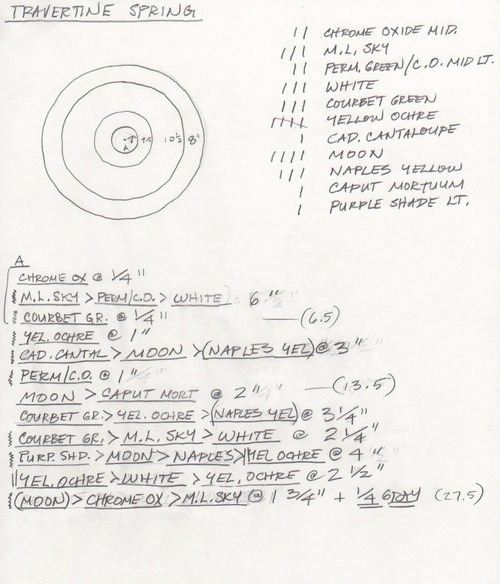 TRAVERTINE SPRING
|| CHROME OXIDE MID.
||| M.L. SKY
|| PERM. GREEN/C.O. MID LT.
||| WHITE
||| COURBET GREEN
YELLOW OCHRE
| CAD. CANTALOUPE
|||| MOON
||| NAPLES YELLOW
| CAPUT MORTUUM
| PURPLE SHADE LT.
A 10 1/2 8"
A
CHROME OX @ 1/4"
M.L. SKY > PERM/C.O. > WHITE 6"
COURBET GR. @ 1/4" —(6.5)
YEL. OCHRE @ 1"
CAD. CANTAL > MOON > (NAPLES YEL) @ 3"
PERM/C.O. @ 1"
MOON > CAPUT MORT @ 2" —(13.5)
COURBET GR. > YEL. OCHRE > (NAPLES YEL) @ 3 1/4"
COURBET GR. > M.L. SKY > WHITE @ 2 1/4"
PURP. SHD. > MOON > NAPLES > YEL OCHRE @ 4"
YEL. OCHRE > WHITE > YEL. OCHRE @ 2 1/2"
(MOON) > CHROME OX > M.L. SKY @ 1 3/4" + 1/4 GRAY (27.5)